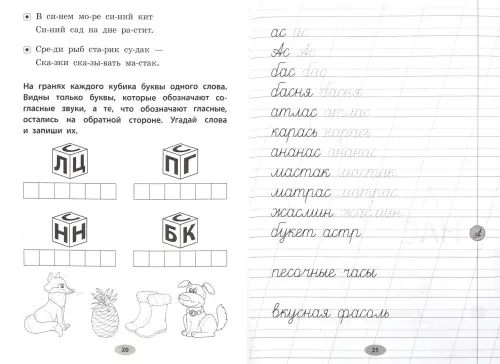 В си-нем мо-ре си-ний кит
Си-ний сад на дне ра-стит.
Сре-ди рыб ста-рик су-дак —
Ска-зки ска-зы-вать ма-стак.
На гранях каждого кубика буквы одного слова.
Видны только буквы, которые обозначают со-
гласные звуки, а те, что обозначают гласные,
остались на обратной стороне. Угадай слова
и запиши их.
С
ЛЦ
С
ПГ
С
НН
С
БК
20
ас ас
Ас Ас
бас бас
басня басня
атлас атлас
карась карась
ананас ананас
мастак мастак
матрас матрас
жасмин жасмин
букет астр
А
песочные часы
вкусная фасоль
21